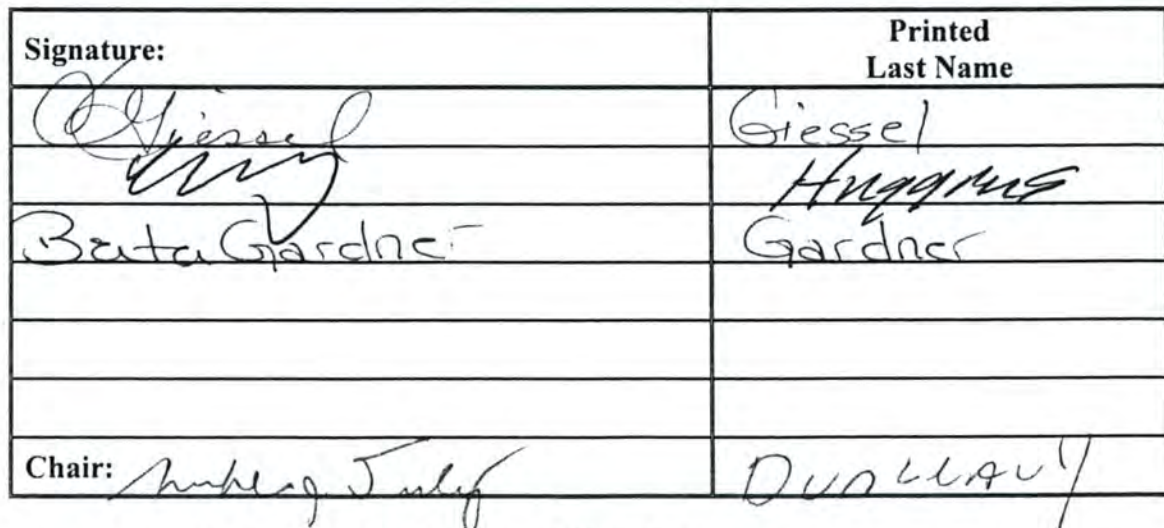 Signature: Printed
Last Name
Giessel Giessel
Huggins
Berta Gardner Gardner
Chair: DUNLEAVY